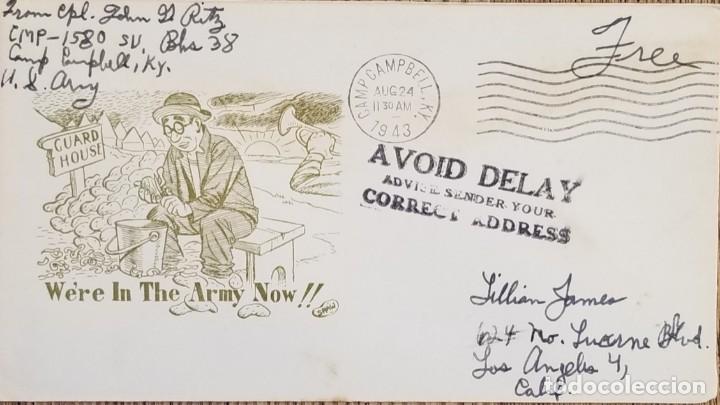 From Cpl. John G Ritz
CMP-1580 SU, Bks 38
Camp Campbell, Ky.
U.S. Army
Free
CAMP CAMPBELL, KY.
AUG 24
11 30 AM
1943
GUARD
HOUSE
AVOID DELAY
ADVISE SENDER YOUR
CORRECT ADDRESS
We're In The Army Now!!
Lillian James
624 No. Lucerne Blvd.
Los Angeles 4,
Calif.
todocoleccion.net